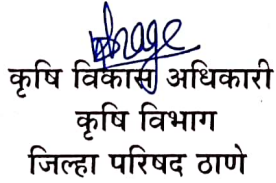 कृषि विकास अधिकारी
कृषि विभाग
जिल्हा परिषद ठाणे